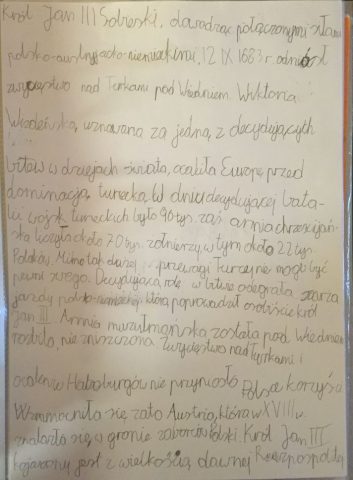 Król Jan III Sobieski, dowodząc połączonymi siłami
polsko-austryjacko-niemieckimi, 12 IX 1683 r. odniósł
zwycięstwo nad Turkami pod Wiedniem. Wiktoria
Wiedeńska, uznawana za jedną z decydujących
bitew w dziejach świata, ocaliła Europę przed
dominacją turecką. W dniu decydującej bata-
lii wojsk tureckich było 90 tys. zaś armia chrześcijań-
ska liczyła około 70 tys. żołnierzy, w tym około 22 tys.
Polaków. Mimo tak dużej przewagi Turcy nie mogli być
pewni swego. Decydującą rolę w bitwie odegrała szarża
jazdy polsko-niemieckiej, którą poprowadził osobiście król
Jan III. Armia muzułmańska została pod Wiedniem
rozbita, nie zniszczona. Zwycięstwo nad Turkami i
ocalenie Habsburgów nie przyniosło Polsce korzyści
Wzmocniła się zato Austria, która w XVIII w.
znalazła się w gronie zaborców Polski. Król Jan III
kojarzony jest z wielkością dawnej Rzeczpospolitej